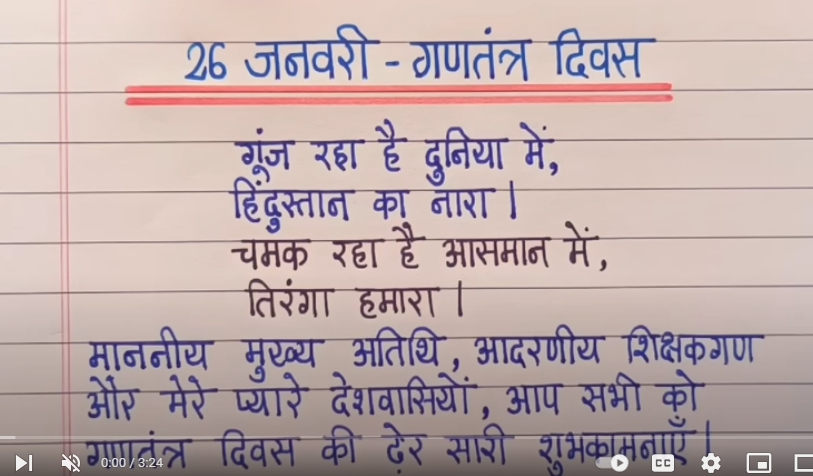 26 जनवरी - गणतंत्र दिवस
गूंज रहा है दुनिया में,
हिंदुस्तान का नारा।
चमक रहा है आसमान में,
तिरंगा हमारा।
माननीय मुख्य अतिथि, आदरणीय शिक्षकगण
और मेरे प्यारे देशवासियों, आप सभी को
गणतंत्र दिवस की ढ़ेर सारी शुभकामनाएँ।
0:00 / 3:24
CC